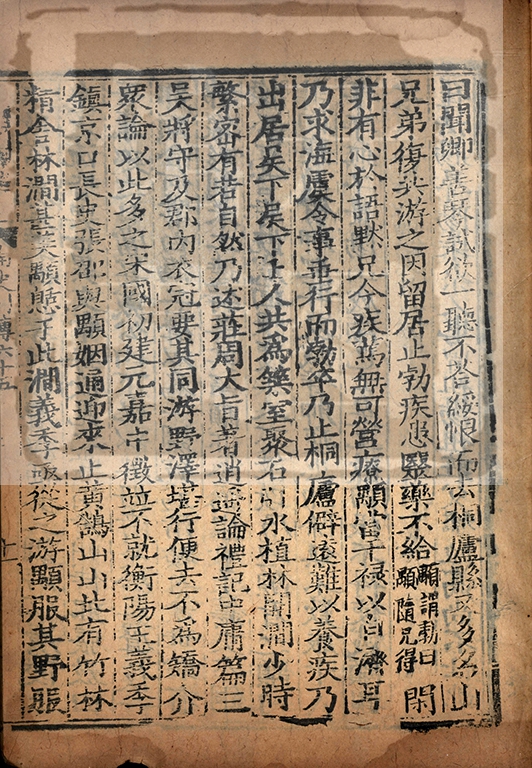 曰聞卿善琴試欲一聽不荅綬恨而去桐廬縣又多名山
兄弟復共游之因留居止勃疾患醫藥不給顒謂勃曰顒隨兄得閑
非有心於語默兄今疾篤無可營療顒當干祿以自濟耳
乃求海虞令事垂行而勃卒乃止桐廬僻遠難以養疾乃
出居吳下吳下士人共為築室聚石引水植林開澗少時
繁密有若自然乃述莊周大旨著逍遙論禮記中庸篇三
吳將守及郡內衣冠要其同游野澤堪行便去不為矯介
眾論以此多之宋國初建元嘉中徵並不就衡陽王義季
鎮京口長史張邵與顒姻通迎來止黃鵠山山北有竹林
精舍林澗甚美顒憩于此澗義季亟從之游顒服其野服
傳六十五